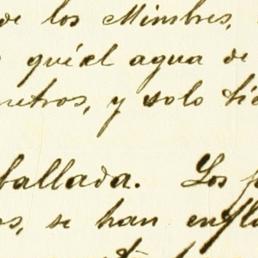 de los Mimbres,
quiel agua de
metros, y solo tie
ballada. Los p
os, se han enfla